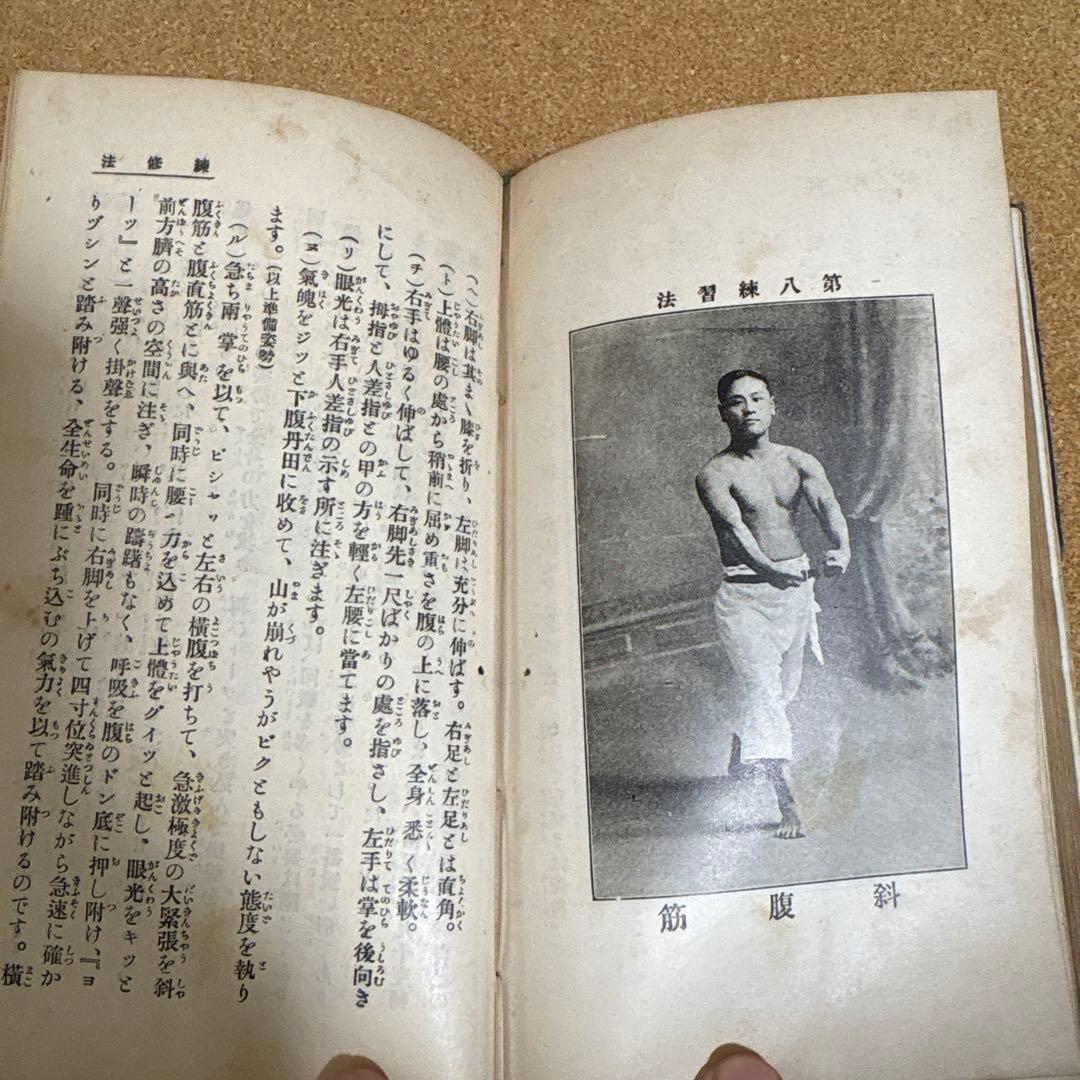 第八練習法
斜腹筋
練修法
(ヘ)右脚は其まゝ膝を折り、左脚は充分に伸ばす。右足と左足とは直角。
(ト)上體は腰の處から稍前に屈め重さを腹の上に落し、全身悉く柔軟。
(チ)右手はゆるく伸ばして、右脚先一尺ばかりの處を指さし、左手は掌を後向き
にして、拇指と人差指との甲の方を輕く左腰に當てます。
(リ)眼光は右手人差指の示す所に注ぎます。
(ヌ)氣魄をジッと下腹丹田に收めて、山が崩れやうがビクともしない態度を執り
ます。(以上準備姿勢)
(ル)急ち兩掌を以て、ピシャッと左右の橫腹を打ちて、急激極度の大緊張を斜
腹筋と腹直筋とに與へ、同時に腰に力を込めて上體をグイッと起し、眼光をキッと
前方臍の高さの空間に注ぎ、瞬時の躊躇もなく、呼吸を腹のドン底に押し附け、『ヨ
ーッ』と一聲强く掛聲をする。同時に右脚を上げて四寸位突進しながら急速に確か
りヅシンと踏み附ける、全生命を踵にぶち込むの氣力を以て踏み附けるのです。橫